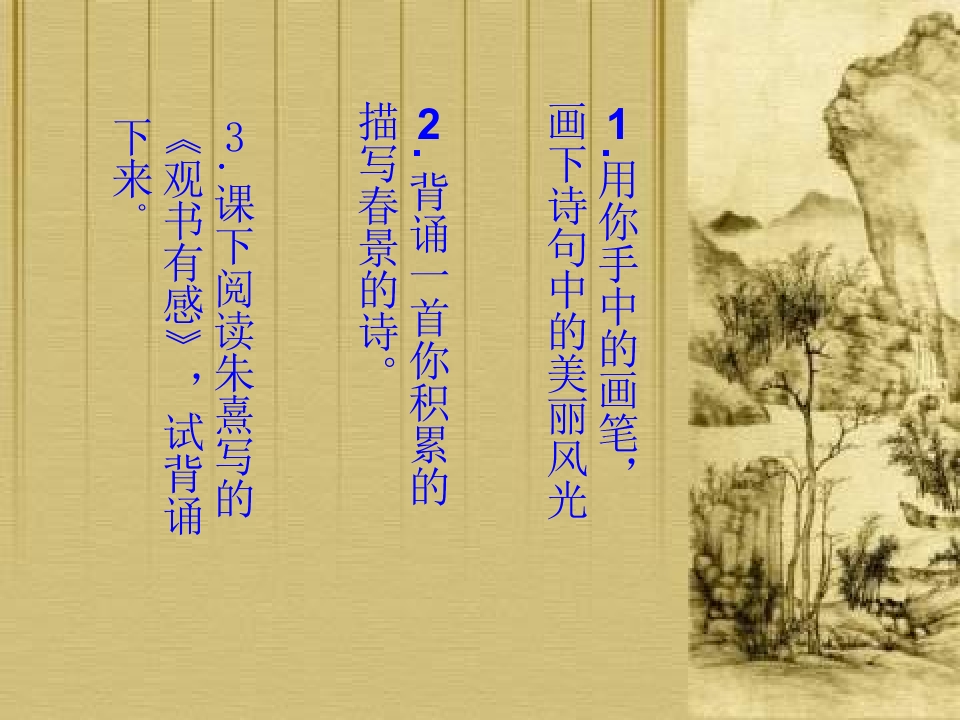 1.用你手中的画笔，
画下诗句中的美丽风光
2.背诵一首你积累的
描写春景的诗。
3.课下阅读朱熹写的
《观书有感》，试背诵
下来。